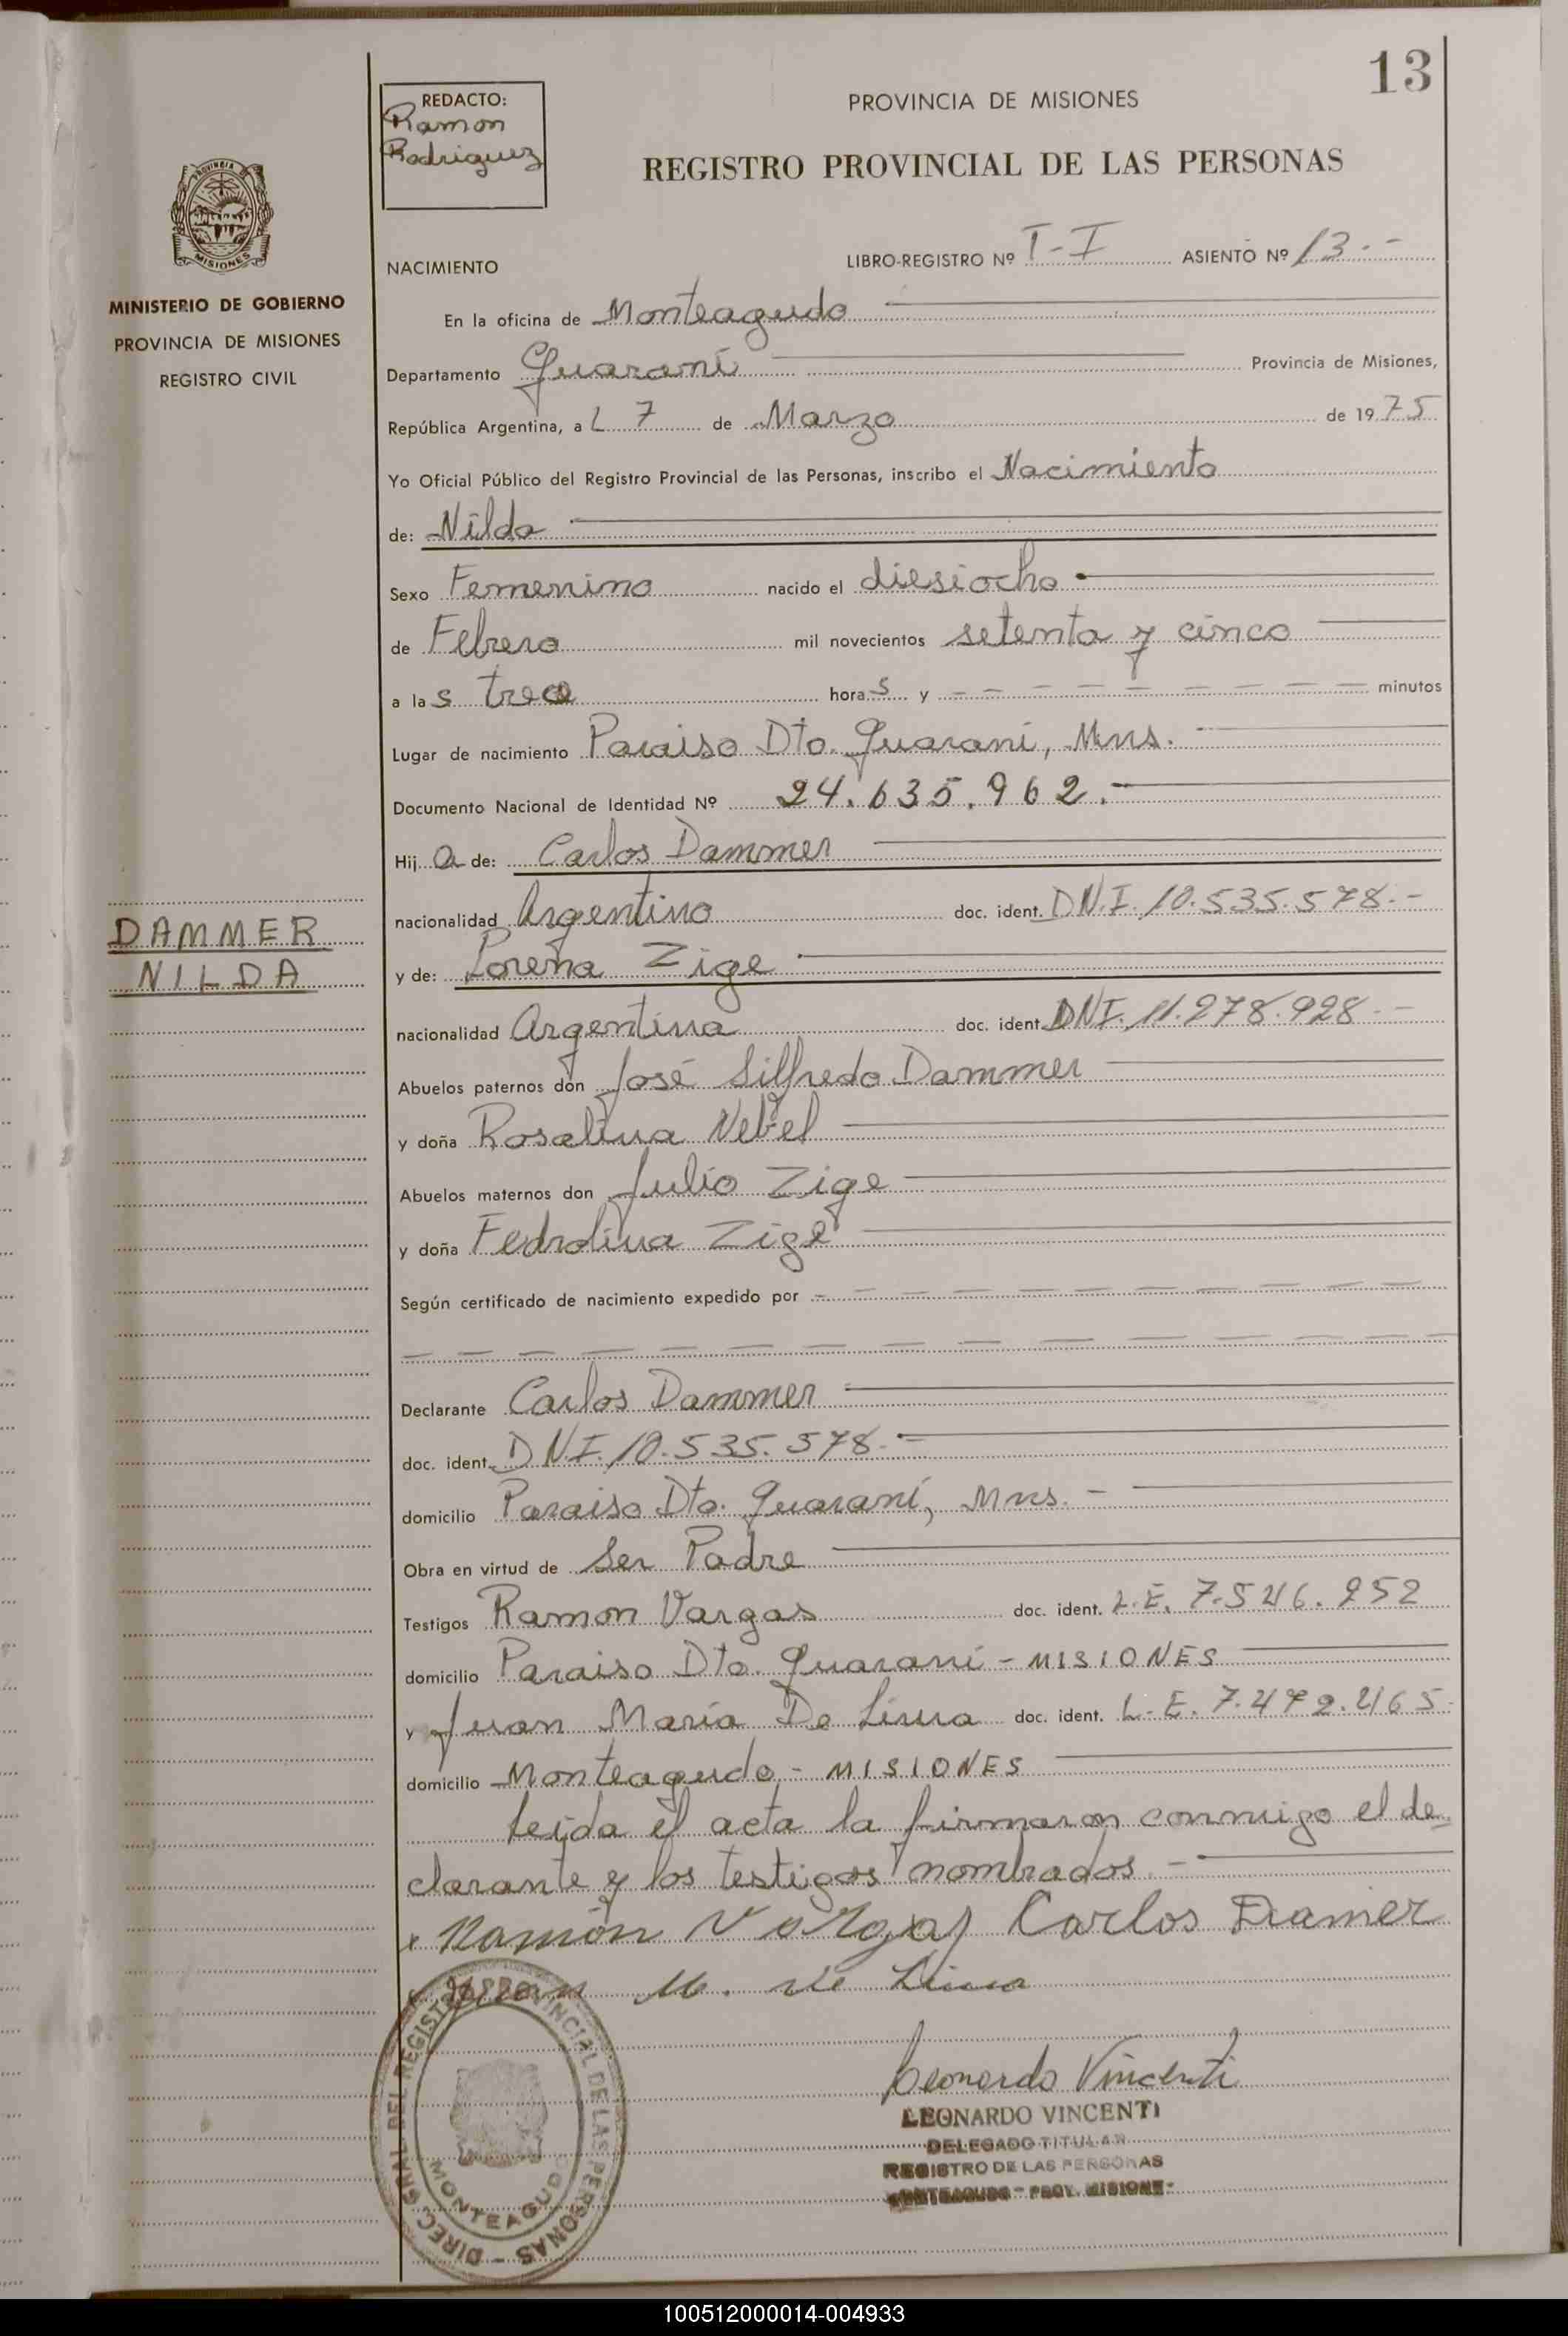 13
REDACTO:
Ramon
Rodriguez
PROVINCIA DE MISIONES
REGISTRO PROVINCIAL DE LAS PERSONAS
PROVINCIA DE
MISIONES
MINISTERIO DE GOBIERNO
PROVINCIA DE MISIONES
REGISTRO CIVIL
NACIMIENTO LIBRO-REGISTRO Nº T-I ASIENTO Nº 13.-
En la oficina de Monteagudo
Departamento Guaraní Provincia de Misiones,
República Argentina, a L 7 de Marzo de 1975
Yo Oficial Público del Registro Provincial de las Personas, inscribo el Nacimiento
de: Nilda
Sexo Femenino nacido el diesiocho
de Febrero mil novecientos setenta y cinco
a las tres horas y - - - - - - - - minutos
Lugar de nacimiento Paraiso Dto. Guaraní, Mns.
Documento Nacional de Identidad Nº 24.635.962.-
Hija de: Carlos Dammer
nacionalidad Argentino doc. ident. D.N.I. 10.535.578.-
DAMMER
NILDA
y de: Lorena Zige
nacionalidad Argentina doc. ident. DNI. 11.278.928.-
Abuelos paternos don José Silfredo Dammer
y doña Rosalina Nebel
Abuelos maternos don Julio Zige
y doña Fedrolina Zige
Según certificado de nacimiento expedido por - - - - - - - -
Declarante Carlos Dammer
doc. ident. D.N.I. 10.535.578.-
domicilio Paraiso Dto. Guaraní, Mns.-
Obra en virtud de Ser Padre
Testigos Ramon Vargas doc. ident. L.E. 7.546.252
domicilio Paraiso Dto. Guaraní - MISIONES
y Juan María De Lima doc. ident. L.E. 7.472.465
domicilio Monteagudo - MISIONES
Leida el acta la firmaron conmigo el de-
clarante y los testigos nombrados.-
Ramón Vargas Carlos Damer
Juan M. de Lima
Leonardo Vincenti
LEONARDO VINCENTI
DELEGADO TITULAR
REGISTRO DE LAS PERSONAS
MONTEAGUDO - PROV. MISIONES
DIREC. GRAL. DEL REGISTRO PROVINCIAL DE LAS PERSONAS -
MONTEAGUDO
100512000014-004933